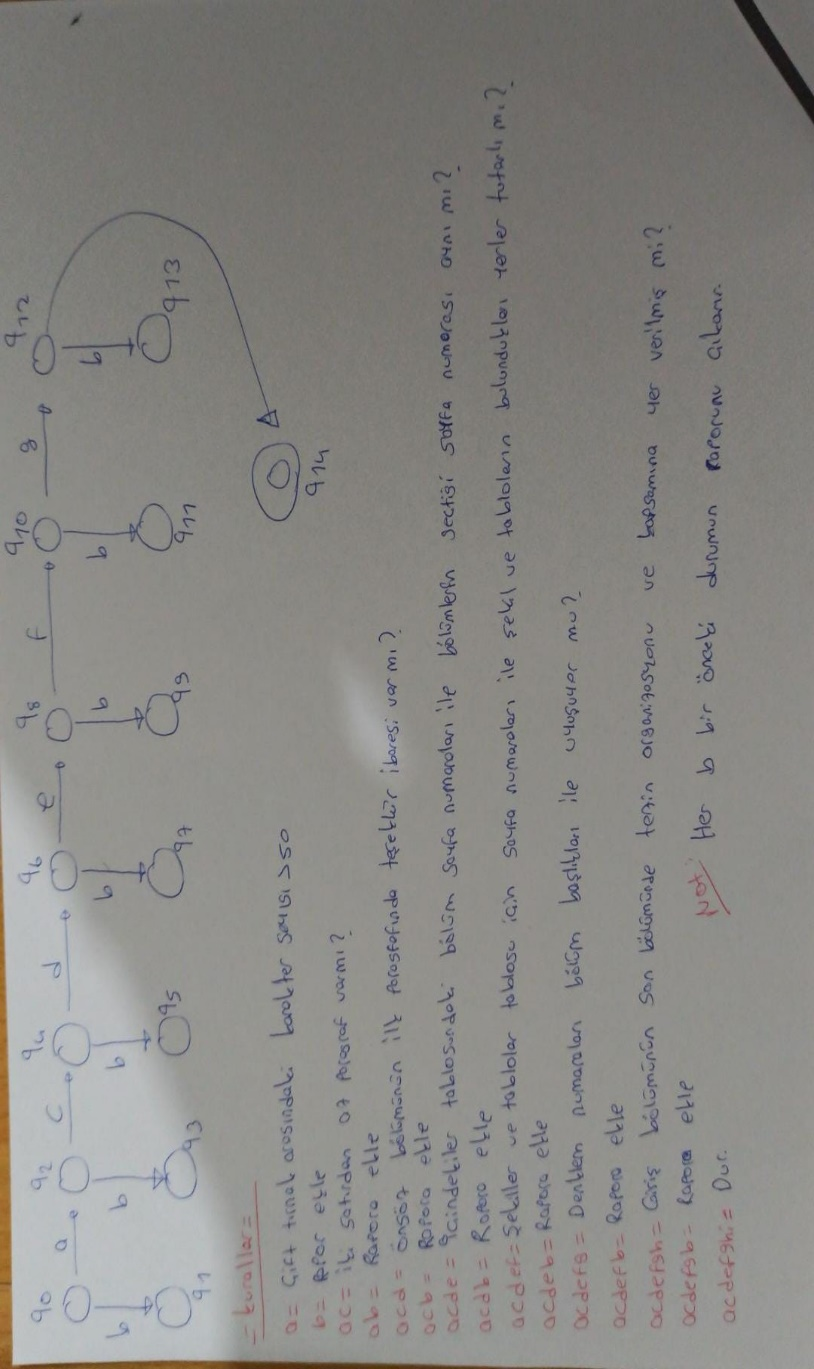 q0 a q2 c q4 d q6 e q8 f q10 g q12
b b b b b b b
q1 q3 q5 q7 q9 q11 q13
q14
= kurallar =
a = Çift tırnak arasındaki karakter sayısı > 50
b = rapor ekle
ac = iki satırdan az paragraf varmı?
ab = Rapora ekle
acd = önsöz bölümünün ilk paragrafında teşekkür ibaresi var mı?
acb = Rapora ekle
acde = içindekiler tablosundaki bölüm sayfa numaraları ile bölümlerin geçtiği sayfa numarası aynı mı?
acdb = Rapora ekle
acdef = Şekiller ve tablolar tablosu için sayfa numaraları ile şekil ve tabloların bulundukları yerler tutarlı mı?
acdeb = Rapora ekle
acdefg = Denklem numaraları bölüm başlıkları ile uyuşuyor mu?
acdefb = Rapora ekle
acdefgh = Giriş bölümünün son bölümünde tezin organizasyonu ve kapsamına yer verilmiş mi?
acdefgb = Rapora ekle
acdefghi = Dur.
Not: Her b bir önceki durumun raporunu çıkarır.